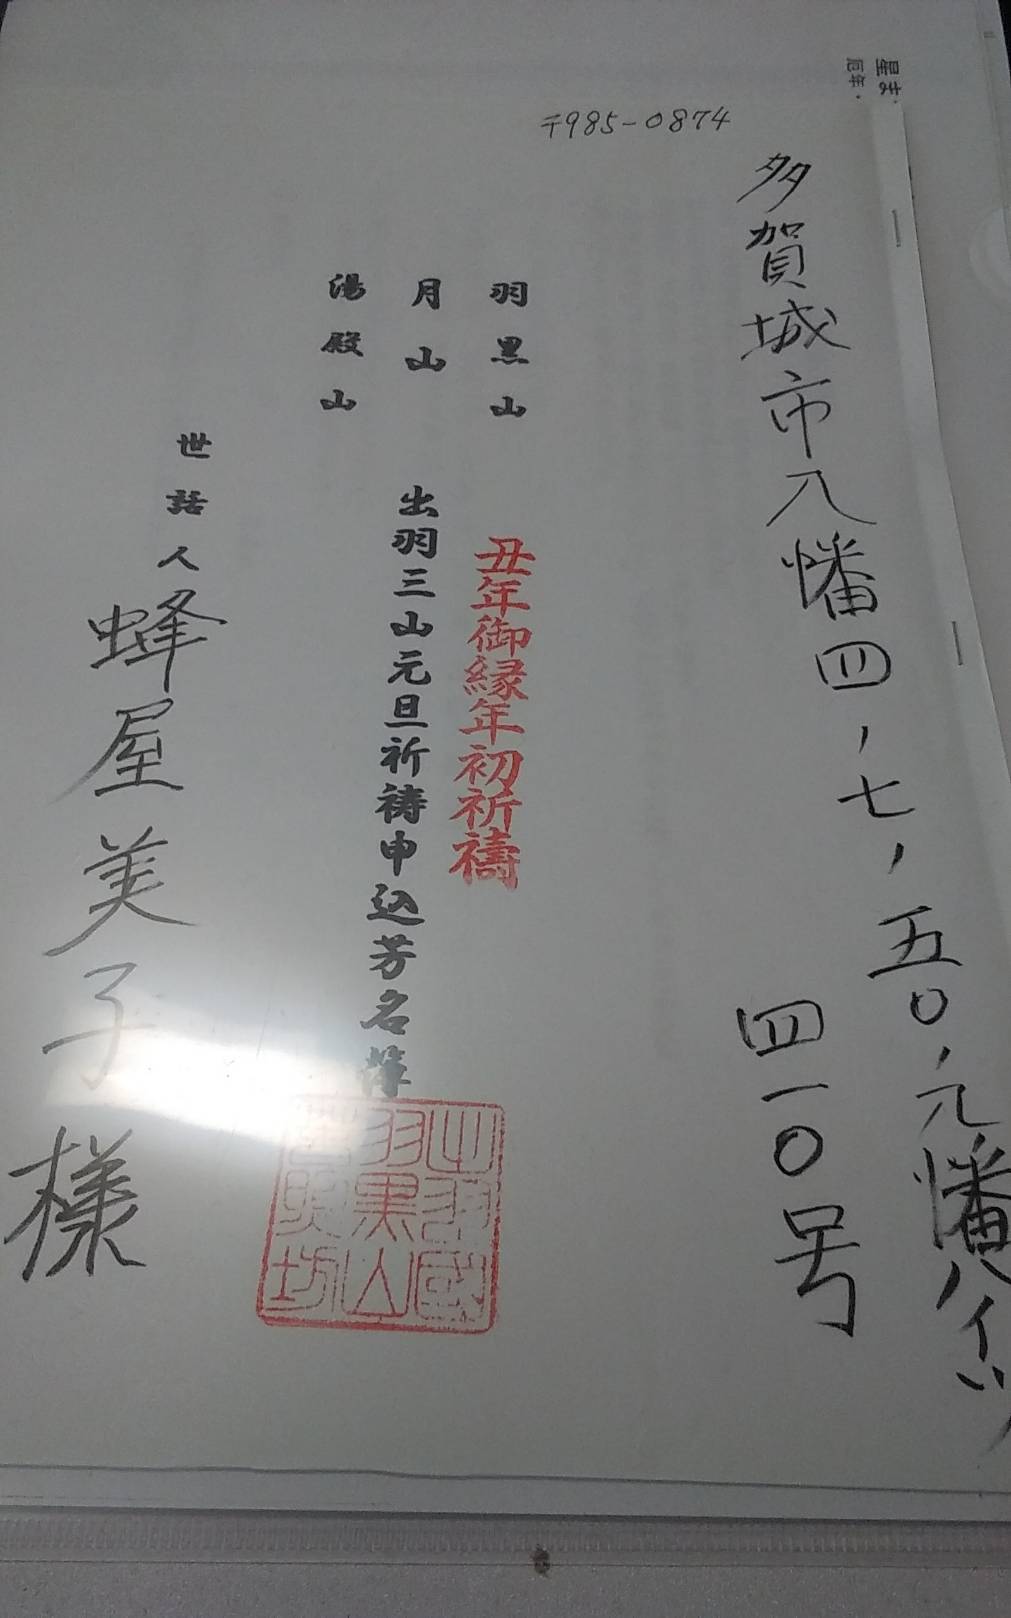 〒985-0874
多賀城市八幡四,七,五〇,元幡ハイツ
四一〇号
羽黒山
月山
湯殿山
丑年御縁年初祈禱
出羽三山元旦祈祷申込芳名簿
世話人 蜂屋美子様
出羽國
羽黒山
坊
厄年・